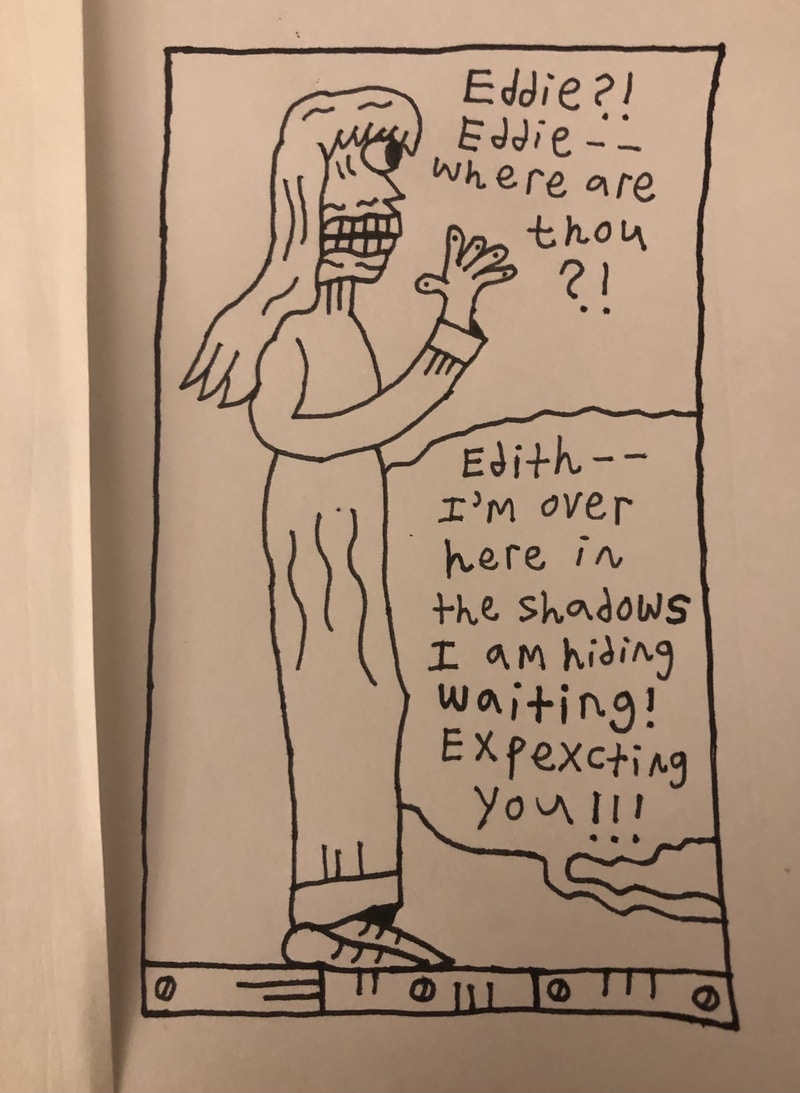 Eddie?!
Eddie--
where are
thou
?!
Edith--
I'm over
here in
the shadows
I am hiding
waiting!
Expexcting
you!!!